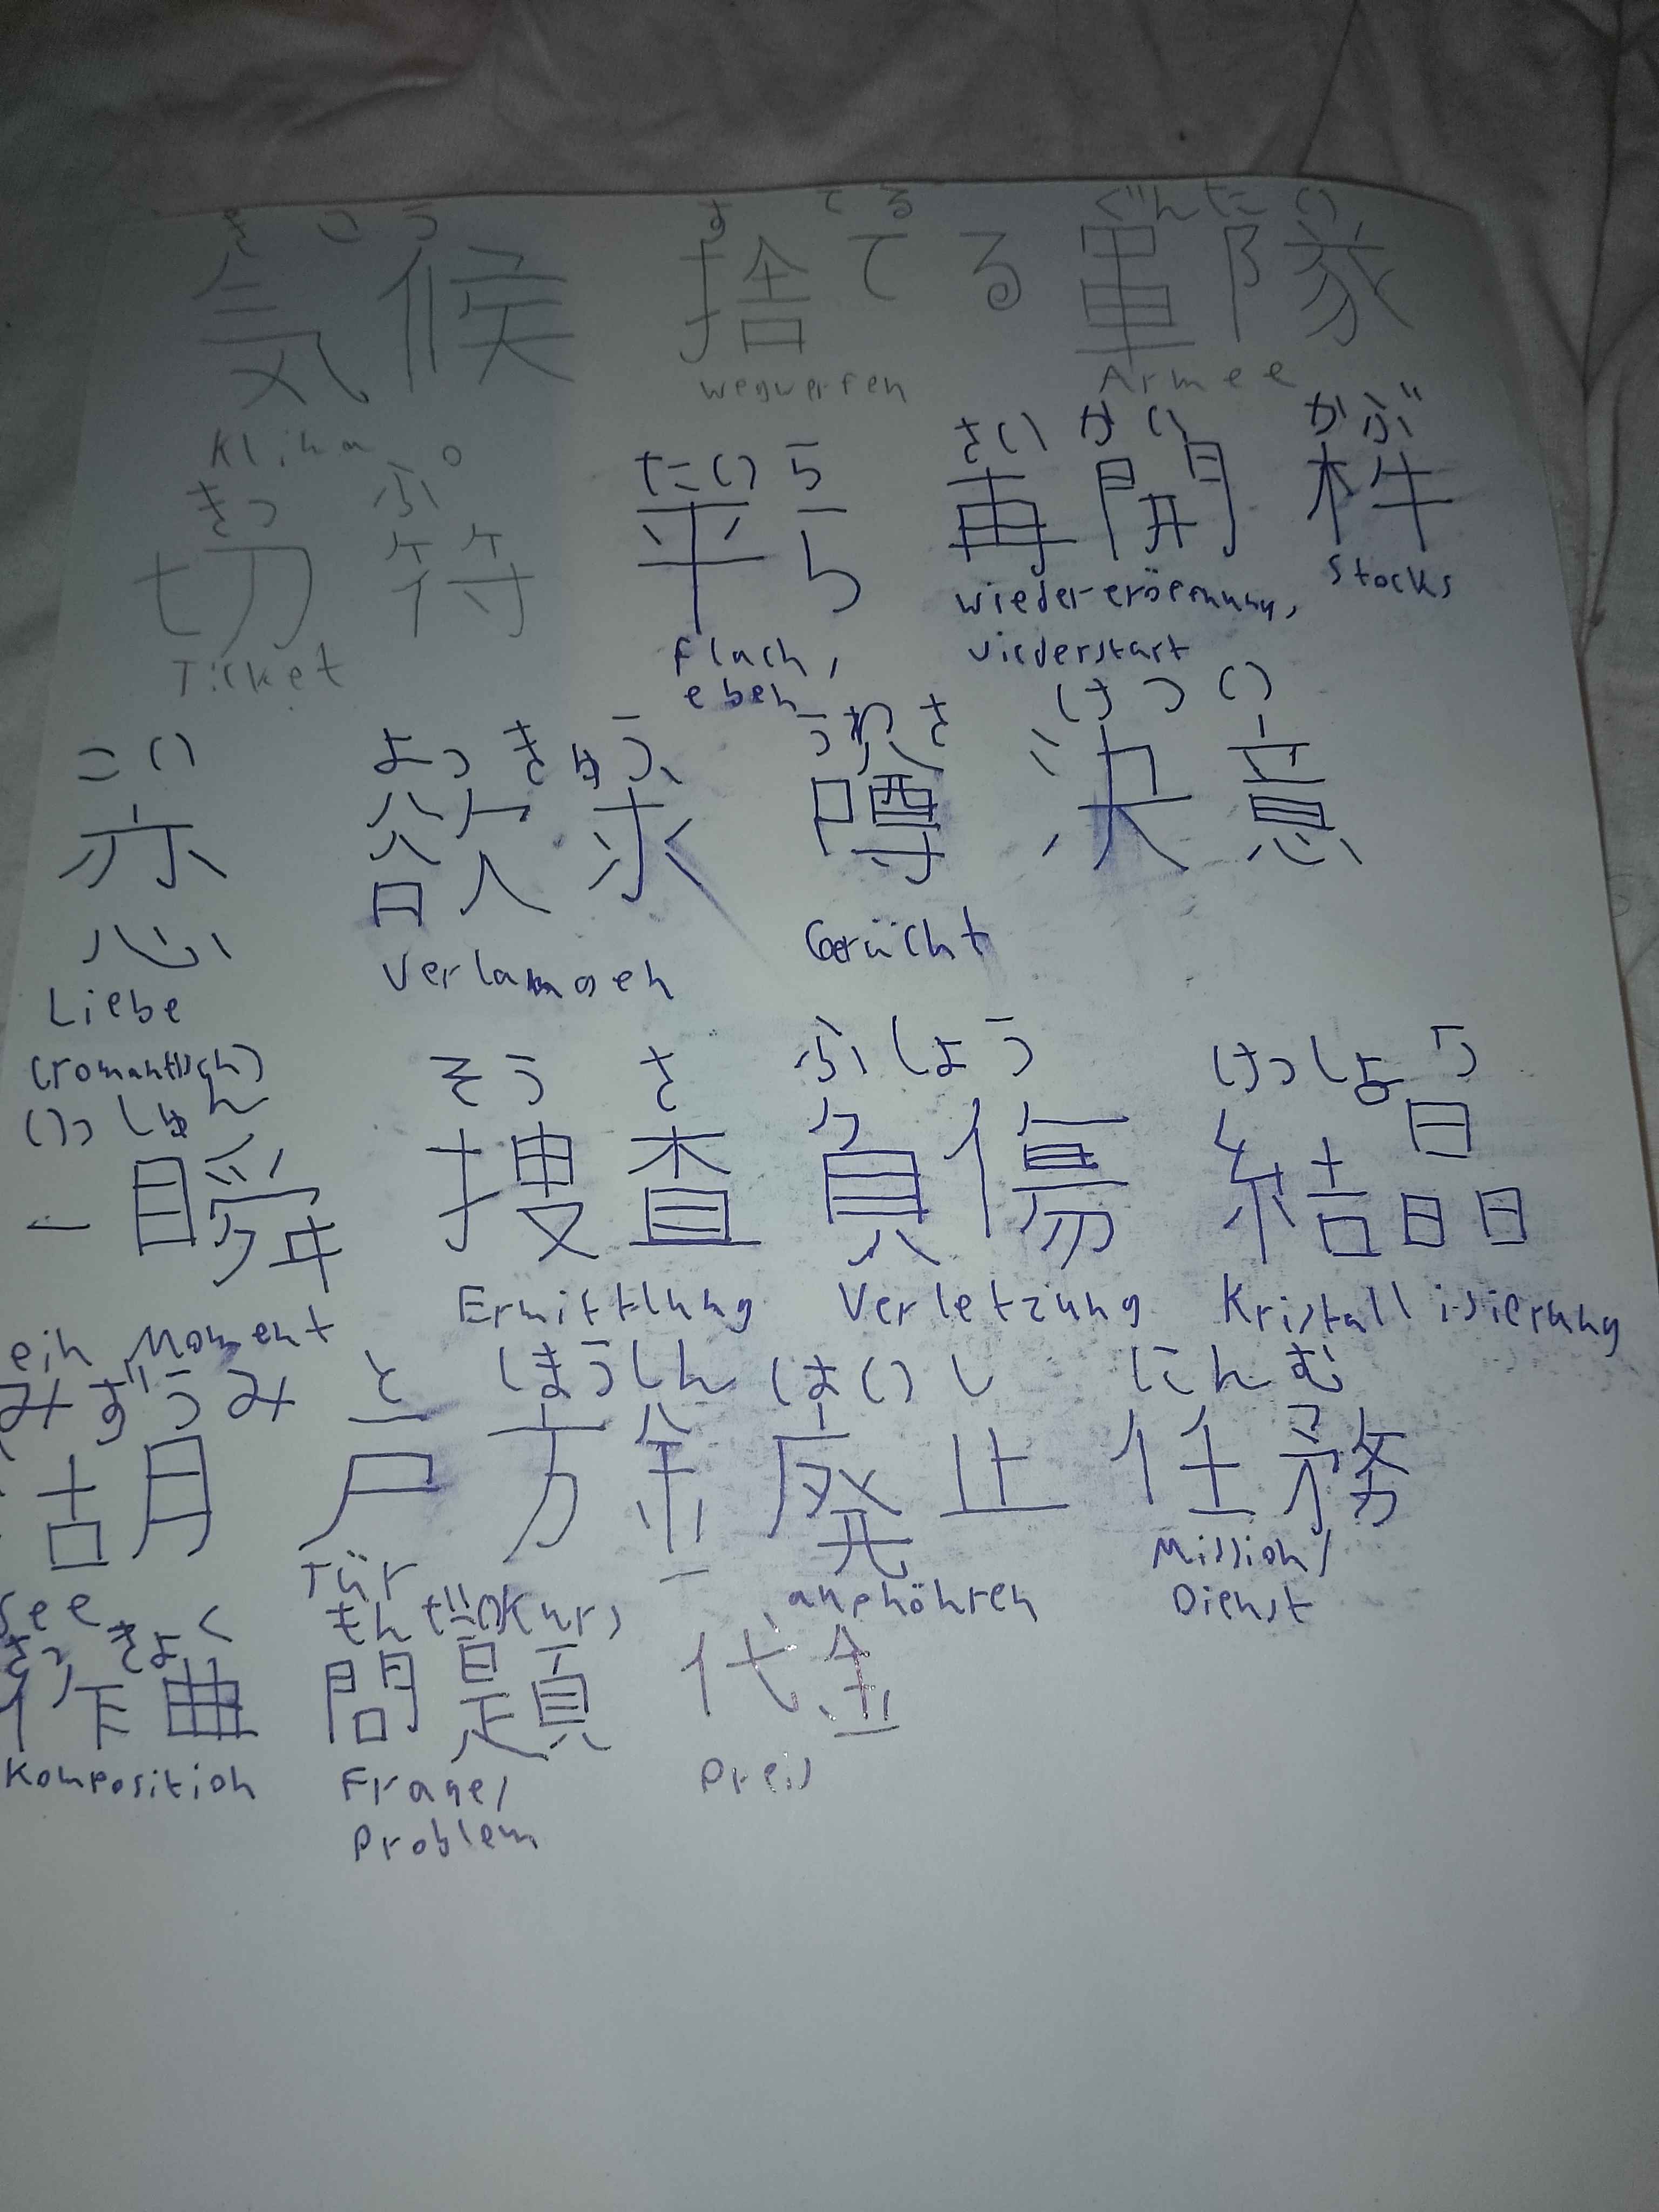 きこう すてる ぐんたい
気候 捨てる 軍隊
Klima wegwerfen Armee
きっぷ たいら さいかい かぶ
切符 平ら 再開 株
Ticket flach, eben wiedereröffnung, wiederstart Stocks
こい よっきゅう うわさ けつい
恋 欲求 噂 決意
Liebe (romantisch) Verlangen Gerücht
いっしゅん そうさ ふしょう けっしょう
一瞬 捜査 負傷 結晶
ein Moment Ermittlung Verletzung Kristallisierung
みずうみ と ほうしん はいし にんむ
湖 戸 方針 廃止 任務
See Tür Kurs aufhöhren Mission/Dienst
さっきょく もんだい
作曲 問題 代金
Komposition Frage/Problem Preis